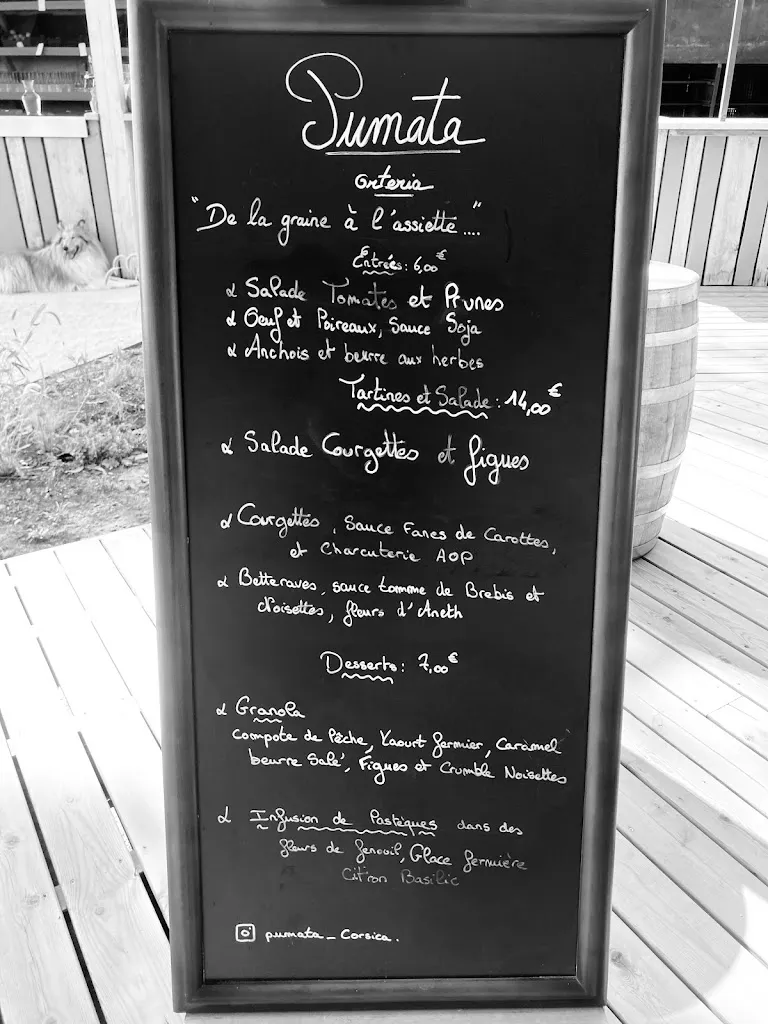 Pumata
Orteria
"De la graine à l'assiette...."
Entrées: 6,00€
Salade Tomates et Prunes
Oeuf et Poireaux, Sauce Soja
Anchois et beurre aux herbes
Tartines et Salade: 14,00€
Salade Courgettes et figues
Courgettes, Sauce Fanes de Carottes,
et Charcuterie AOP
Betteraves, sauce tomme de Brebis et
Noisettes, fleurs d'Aneth
Desserts: 7,00€
Granola
compote de Pêche, Yaourt fermier, Caramel
beurre Salé, Figues et Crumble Noisettes
Infusion de Pastèques dans des
fleurs de fenouil, Glace fermière
Citron Basilic
pumata_Corsica.